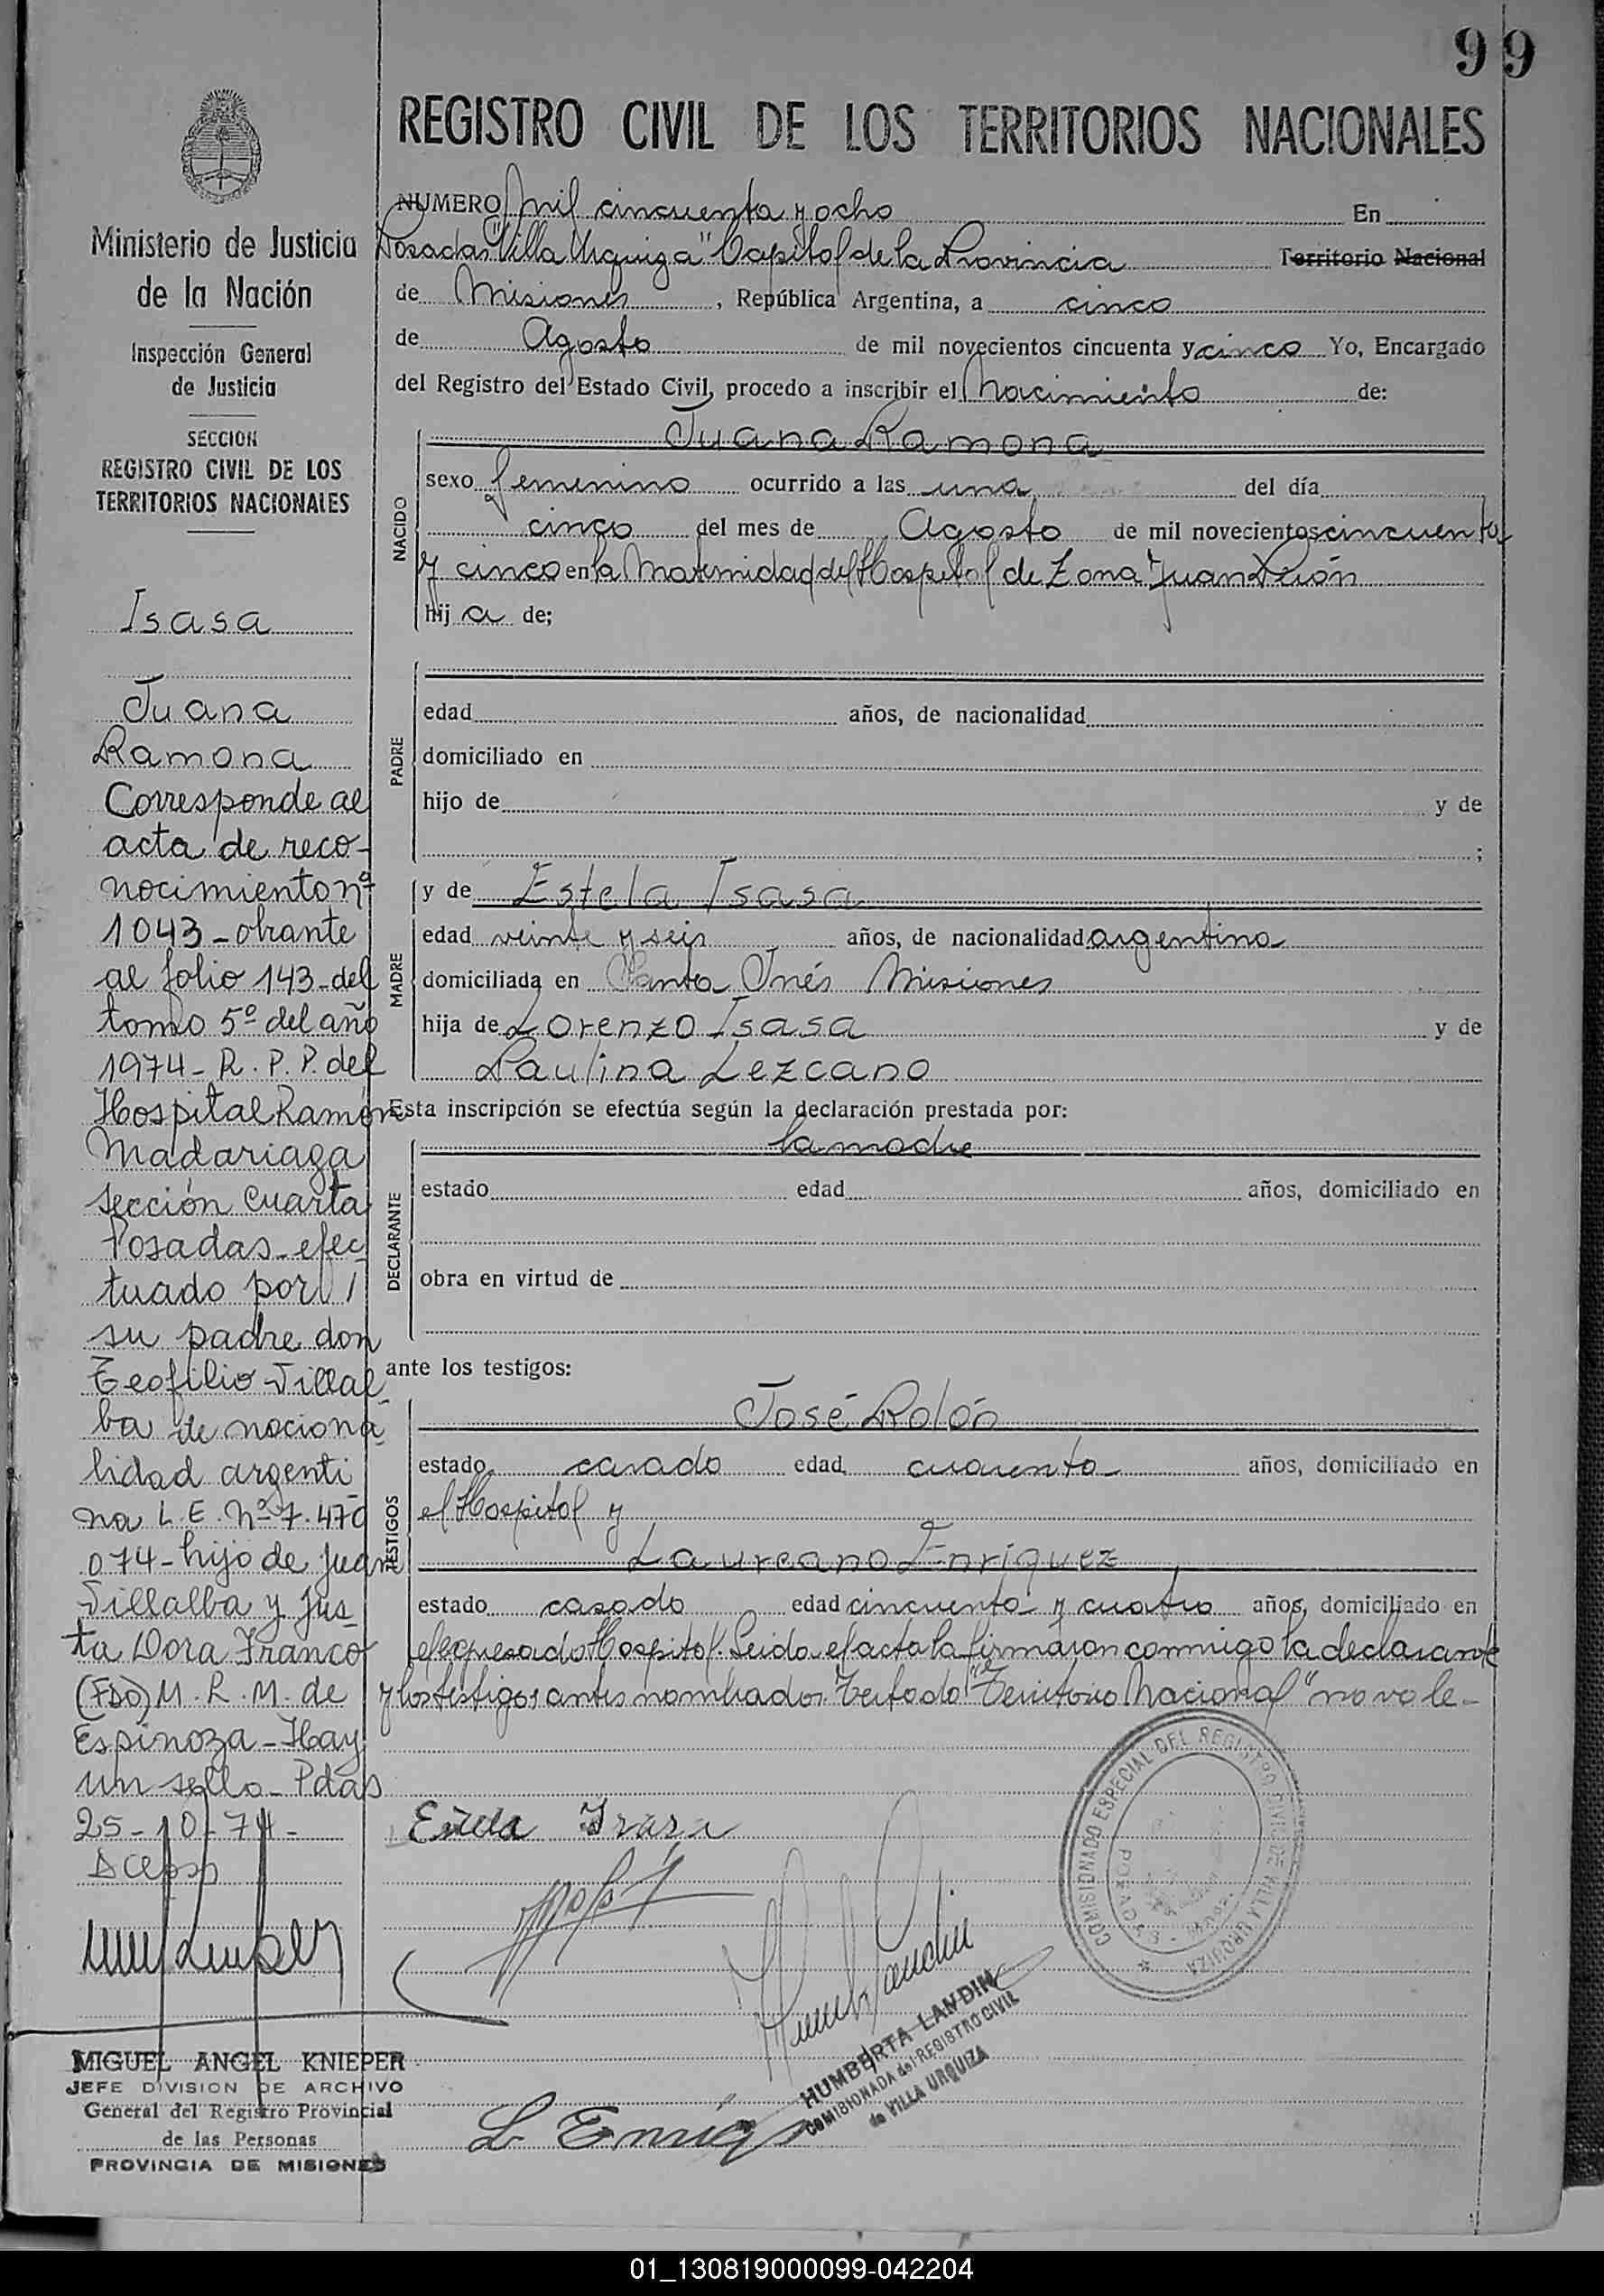 99
REGISTRO CIVIL DE LOS TERRITORIOS NACIONALES
Ministerio de Justicia
de la Nación
Inspección General
de Justicia
SECCION
REGISTRO CIVIL DE LOS
TERRITORIOS NACIONALES
Isasa
Juana
Ramona
Corresponde al
acta de reco-
nocimiento nº
1043 - obrante
al folio 143 - del
tomo 5º del año
1974 - R. P. P. del
Hospital Ramón
Madariaga
sección cuarta
Posadas - efec
tuado por
su padre don
Teofilio Villal
ba de naciona
lidad argenti
na L.E. Nº 7.470
074 - hijo de Juan
Villalba y Jus
ta Dora Franco
(FDO) M. R. M. de
Espinoza - Hay
un sello - Pdas
25 - 10 - 74 -
MIGUEL ANGEL KNIEPER
JEFE DIVISION DE ARCHIVO
General del Registro Provincial
de las Personas
PROVINCIA DE MISIONES
NUMERO mil cincuenta y ocho En
Posadas "Villa Urquiza" Capital de la Provincia Territorio Nacional
de Misiones, República Argentina, a cinco
de Agosto de mil novecientos cincuenta y cinco Yo, Encargado
del Registro del Estado Civil, procedo a inscribir el Nacimiento de:
NACIDO
Juana Ramona
sexo femenino ocurrido a las una del día
cinco del mes de Agosto de mil novecientos cincuenta
y cinco en la Maternidad del Hospital de Zona "Juan Perón
hija de;
PADRE
edad años, de nacionalidad
domiciliado en
hijo de y de
;
MADRE
y de Estela Isasa
edad veinte y seis años, de nacionalidad argentina
domiciliada en Santa Inés Misiones
hija de Lorenzo Isasa y de
Paulina Lezcano
Esta inscripción se efectúa según la declaración prestada por:
DECLARANTE
la madre
estado edad años, domiciliado en
obra en virtud de
ante los testigos:
TESTIGOS
José Rolón
estado casado edad cuarenta años, domiciliado en
el Hospital y
Laureano Enriquez
estado casado edad cincuenta y cuatro años, domiciliado en
el expresado Hospital. Leida el acta la firmaron conmigo la declarante
y los testigos antes nombrados Testado "Territorio Nacional" no vale -
COMISIONADO ESPECIAL DEL REGISTRO CIVIL DE VILLA URQUIZA
POSADAS
HUMBERTA LANDIN
COMISIONADA del REGISTRO CIVIL
de VILLA URQUIZA
L Enriq
01_130819000099-042204